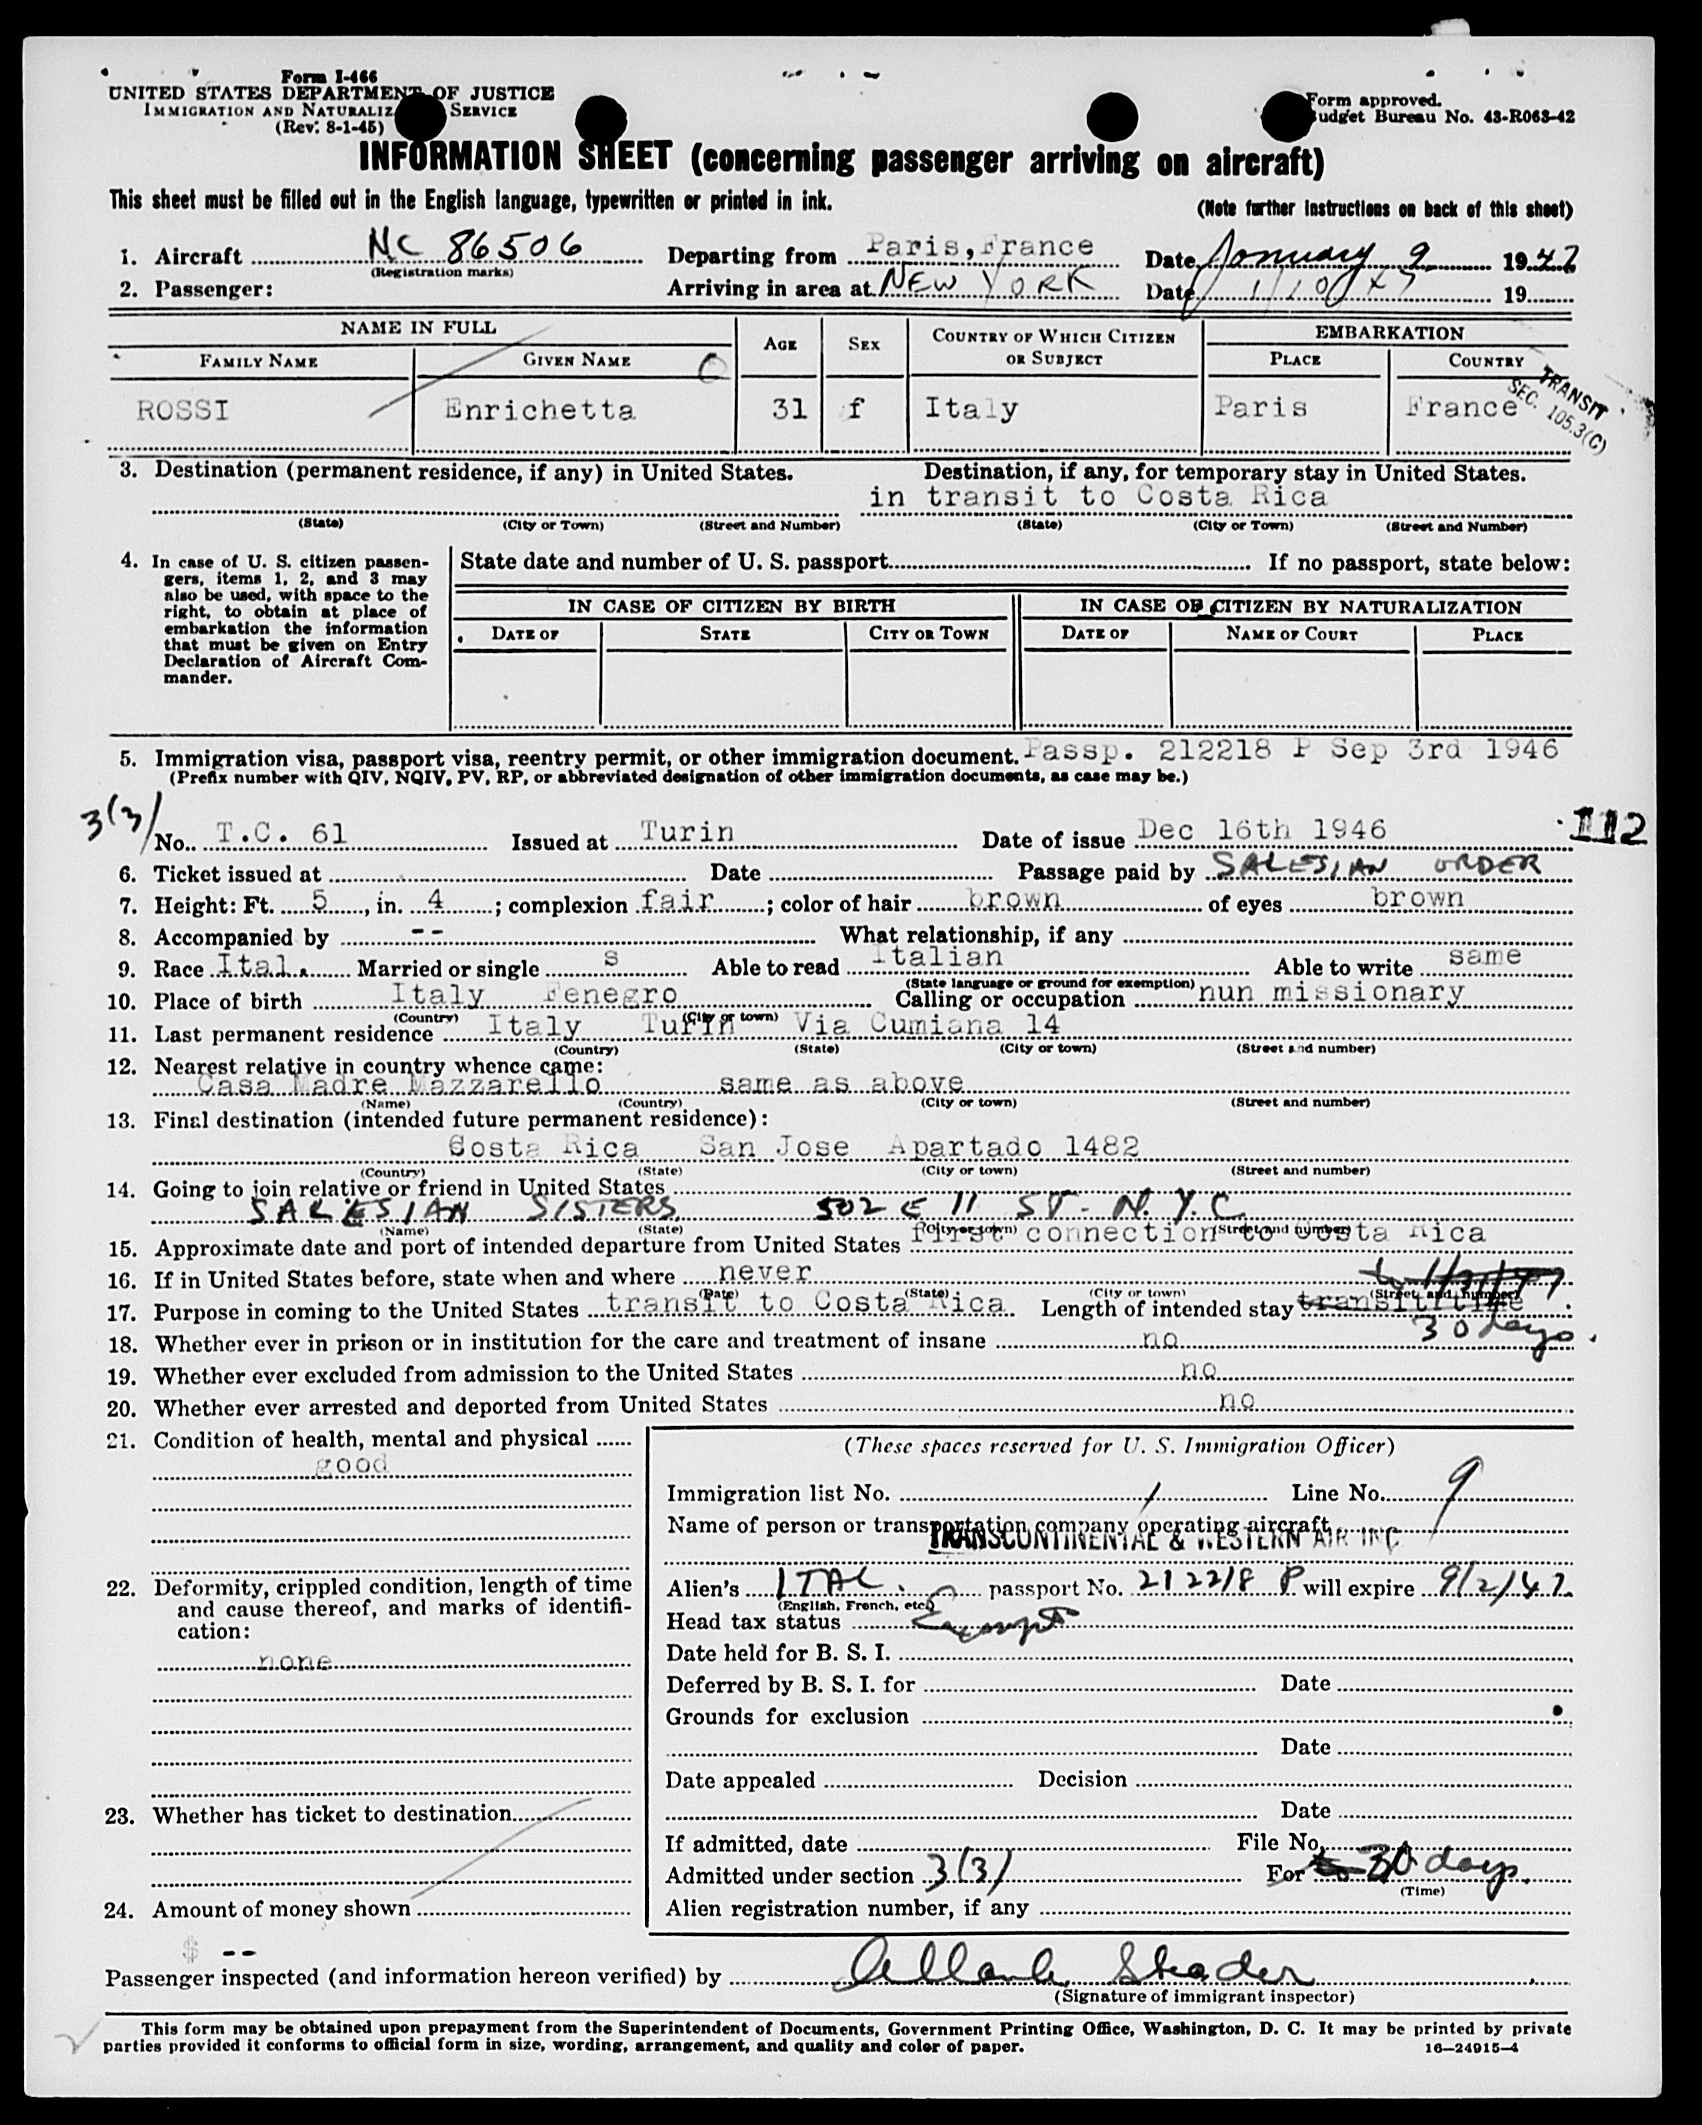 Form I-466
UNITED STATES DEPARTMENT OF JUSTICE
IMMIGRATION AND NATURALIZ SERVICE
(Rev. 8-1-45)
Form approved.
Budget Bureau No. 43-R063-42
INFORMATION SHEET (concerning passenger arriving on aircraft)
This sheet must be filled out in the English language, typewritten or printed in ink.
(Note further instructions on back of this sheet)
1. Aircraft NC 86506 Departing from Paris, France Date January 9 1947
(Registration marks)
2. Passenger: Arriving in area at NEW YORK Date 1/10/47 19
NAME IN FULL AGE SEX COUNTRY OF WHICH CITIZEN OR SUBJECT EMBARKATION
FAMILY NAME GIVEN NAME PLACE COUNTRY
ROSSI Enrichetta 31 f Italy Paris France
TRANSIT
SEC. 105.3(C)
3. Destination (permanent residence, if any) in United States. Destination, if any, for temporary stay in United States.
in transit to Costa Rica
(State) (City or Town) (Street and Number) (State) (City or Town) (Street and Number)
4. In case of U. S. citizen passengers, items 1, 2, and 3 may also be used, with space to the right, to obtain at place of embarkation the information that must be given on Entry Declaration of Aircraft Commander.
State date and number of U. S. passport If no passport, state below:
IN CASE OF CITIZEN BY BIRTH IN CASE OF CITIZEN BY NATURALIZATION
DATE OF STATE CITY OR TOWN DATE OF NAME OF COURT PLACE
5. Immigration visa, passport visa, reentry permit, or other immigration document. Passp. 212218 P Sep 3rd 1946
(Prefix number with QIV, NQIV, PV, RP, or abbreviated designation of other immigration documents, as case may be.)
3(3)
No. T.C. 61 Issued at Turin Date of issue Dec 16th 1946 112
6. Ticket issued at Date Passage paid by SALESIAN ORDER
7. Height: Ft. 5, in. 4; complexion fair; color of hair brown of eyes brown
8. Accompanied by -- What relationship, if any
9. Race Ital. Married or single s Able to read Italian Able to write same
(State language or ground for exemption)
10. Place of birth Italy Fenegro Calling or occupation nun missionary
(Country) (City or town)
11. Last permanent residence Italy Turin Via Cumiana 14
(Country) (State) (City or town) (Street and number)
12. Nearest relative in country whence came:
Casa Madre Mazzarello same as above
(Name) (Country) (City or town) (Street and number)
13. Final destination (intended future permanent residence):
Costa Rica San Jose Apartado 1482
(Country) (State) (City or town) (Street and number)
14. Going to join relative or friend in United States
SALESIAN SISTERS 302 E 11 ST. N.Y.C
(Name) (State) (City or town) (Street and number)
15. Approximate date and port of intended departure from United States first connection to Costa Rica
16. If in United States before, state when and where never
(Date) (State) (City or town) (Street and number)
17. Purpose in coming to the United States transit to Costa Rica Length of intended stay transit time
30 days.
18. Whether ever in prison or in institution for the care and treatment of insane no
19. Whether ever excluded from admission to the United States no
20. Whether ever arrested and deported from United States no
21. Condition of health, mental and physical
good
22. Deformity, crippled condition, length of time and cause thereof, and marks of identification:
none
23. Whether has ticket to destination
24. Amount of money shown
$ --
(These spaces reserved for U. S. Immigration Officer)
Immigration list No. 1 Line No. 9
Name of person or transportation company operating aircraft
TRANSCONTINENTAL & WESTERN AIR INC
Alien's ITAL. passport No. 212218 P will expire 9/2/47.
(English, French, etc.)
Head tax status Exempt
Date held for B. S. I.
Deferred by B. S. I. for Date
Grounds for exclusion
Date
Date appealed Decision
Date
If admitted, date File No.
Admitted under section 3(3) For 30 days.
(Time)
Alien registration number, if any
Passenger inspected (and information hereon verified) by
(Signature of immigrant inspector)
This form may be obtained upon prepayment from the Superintendent of Documents, Government Printing Office, Washington, D. C. It may be printed by private
parties provided it conforms to official form in size, wording, arrangement, and quality and color of paper.
16—24915-4